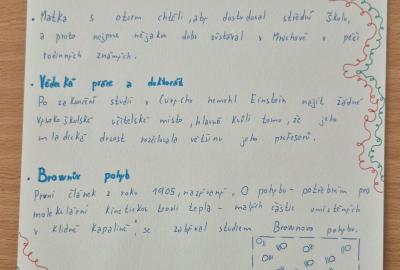 • Matka s otcem chtěli, aby dostudoval střední školu,
a proto nejprve nějakou dobu zůstával v Mnichově v péči
rodinných známých.
• Vědecká práce a doktorát
Po zakončení studií v Curychu nemohl Einstein najít žádné
vysokoškolské učitelské místo, hlavně kvůli tomu, že jeho
mladická drzost rozčilovala většinu jeho profesorů.
• Brownův pohyb
První článek z roku 1905, nazývaný „O pohybu - potřebném pro
molekulární kinetickou teorii tepla - malých částic umístěných
v klidné kapalině", se zabýval studiem Brownova pohybu.